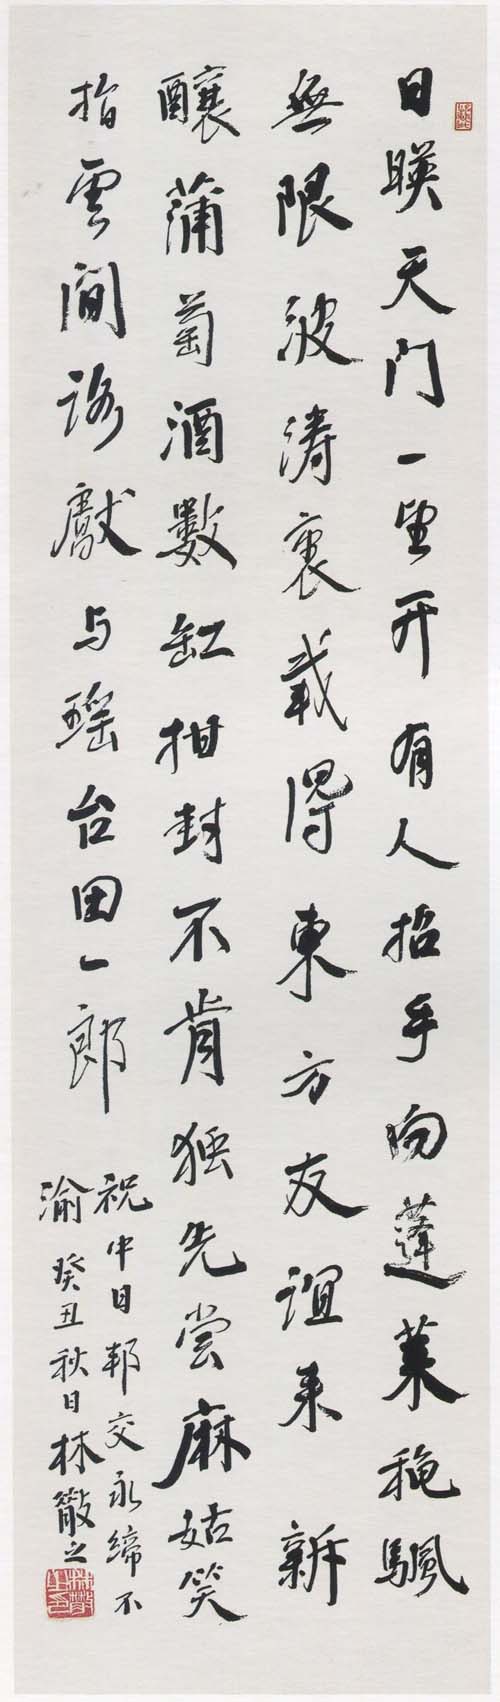 日暎天门一望开有人招手向蓬莱穐颿
無限波濤裏載得東方友谊来新
釀蒲萄酒數缸拑封不肯独先尝麻姑笑
指雲间路獻与瑶台田一郎
祝中日邦交永缔不
渝癸丑秋日林散之